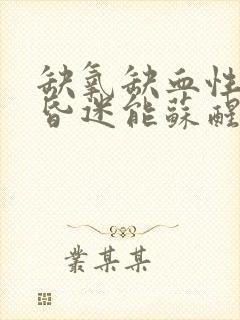 缺氧缺血性
昏迷能蘇醒
叢某某